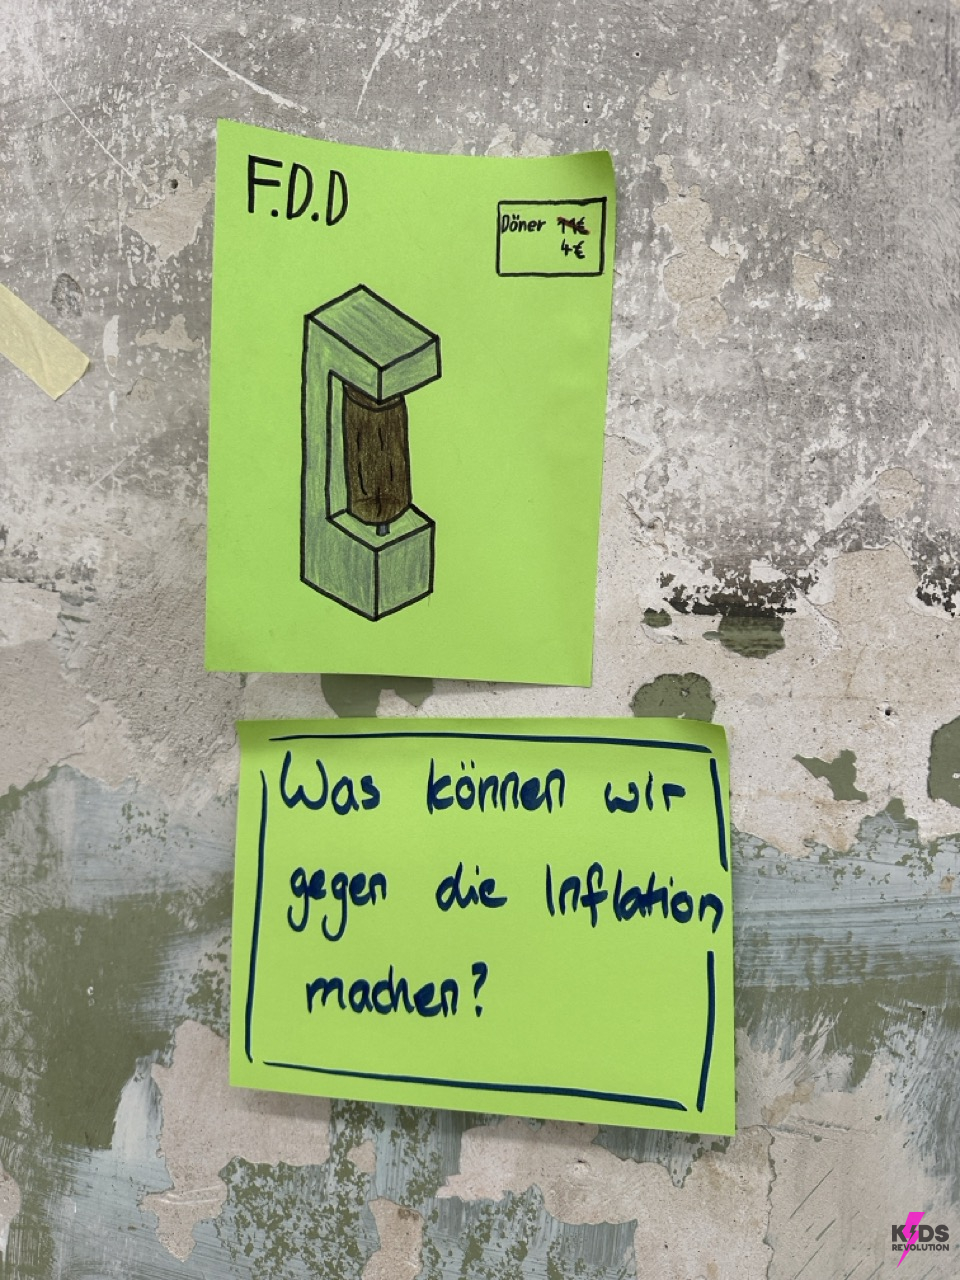 F.D.D
Döner 11€
4€
Was können wir
gegen die Inflation
machen?
KIDS
REVOLUTION